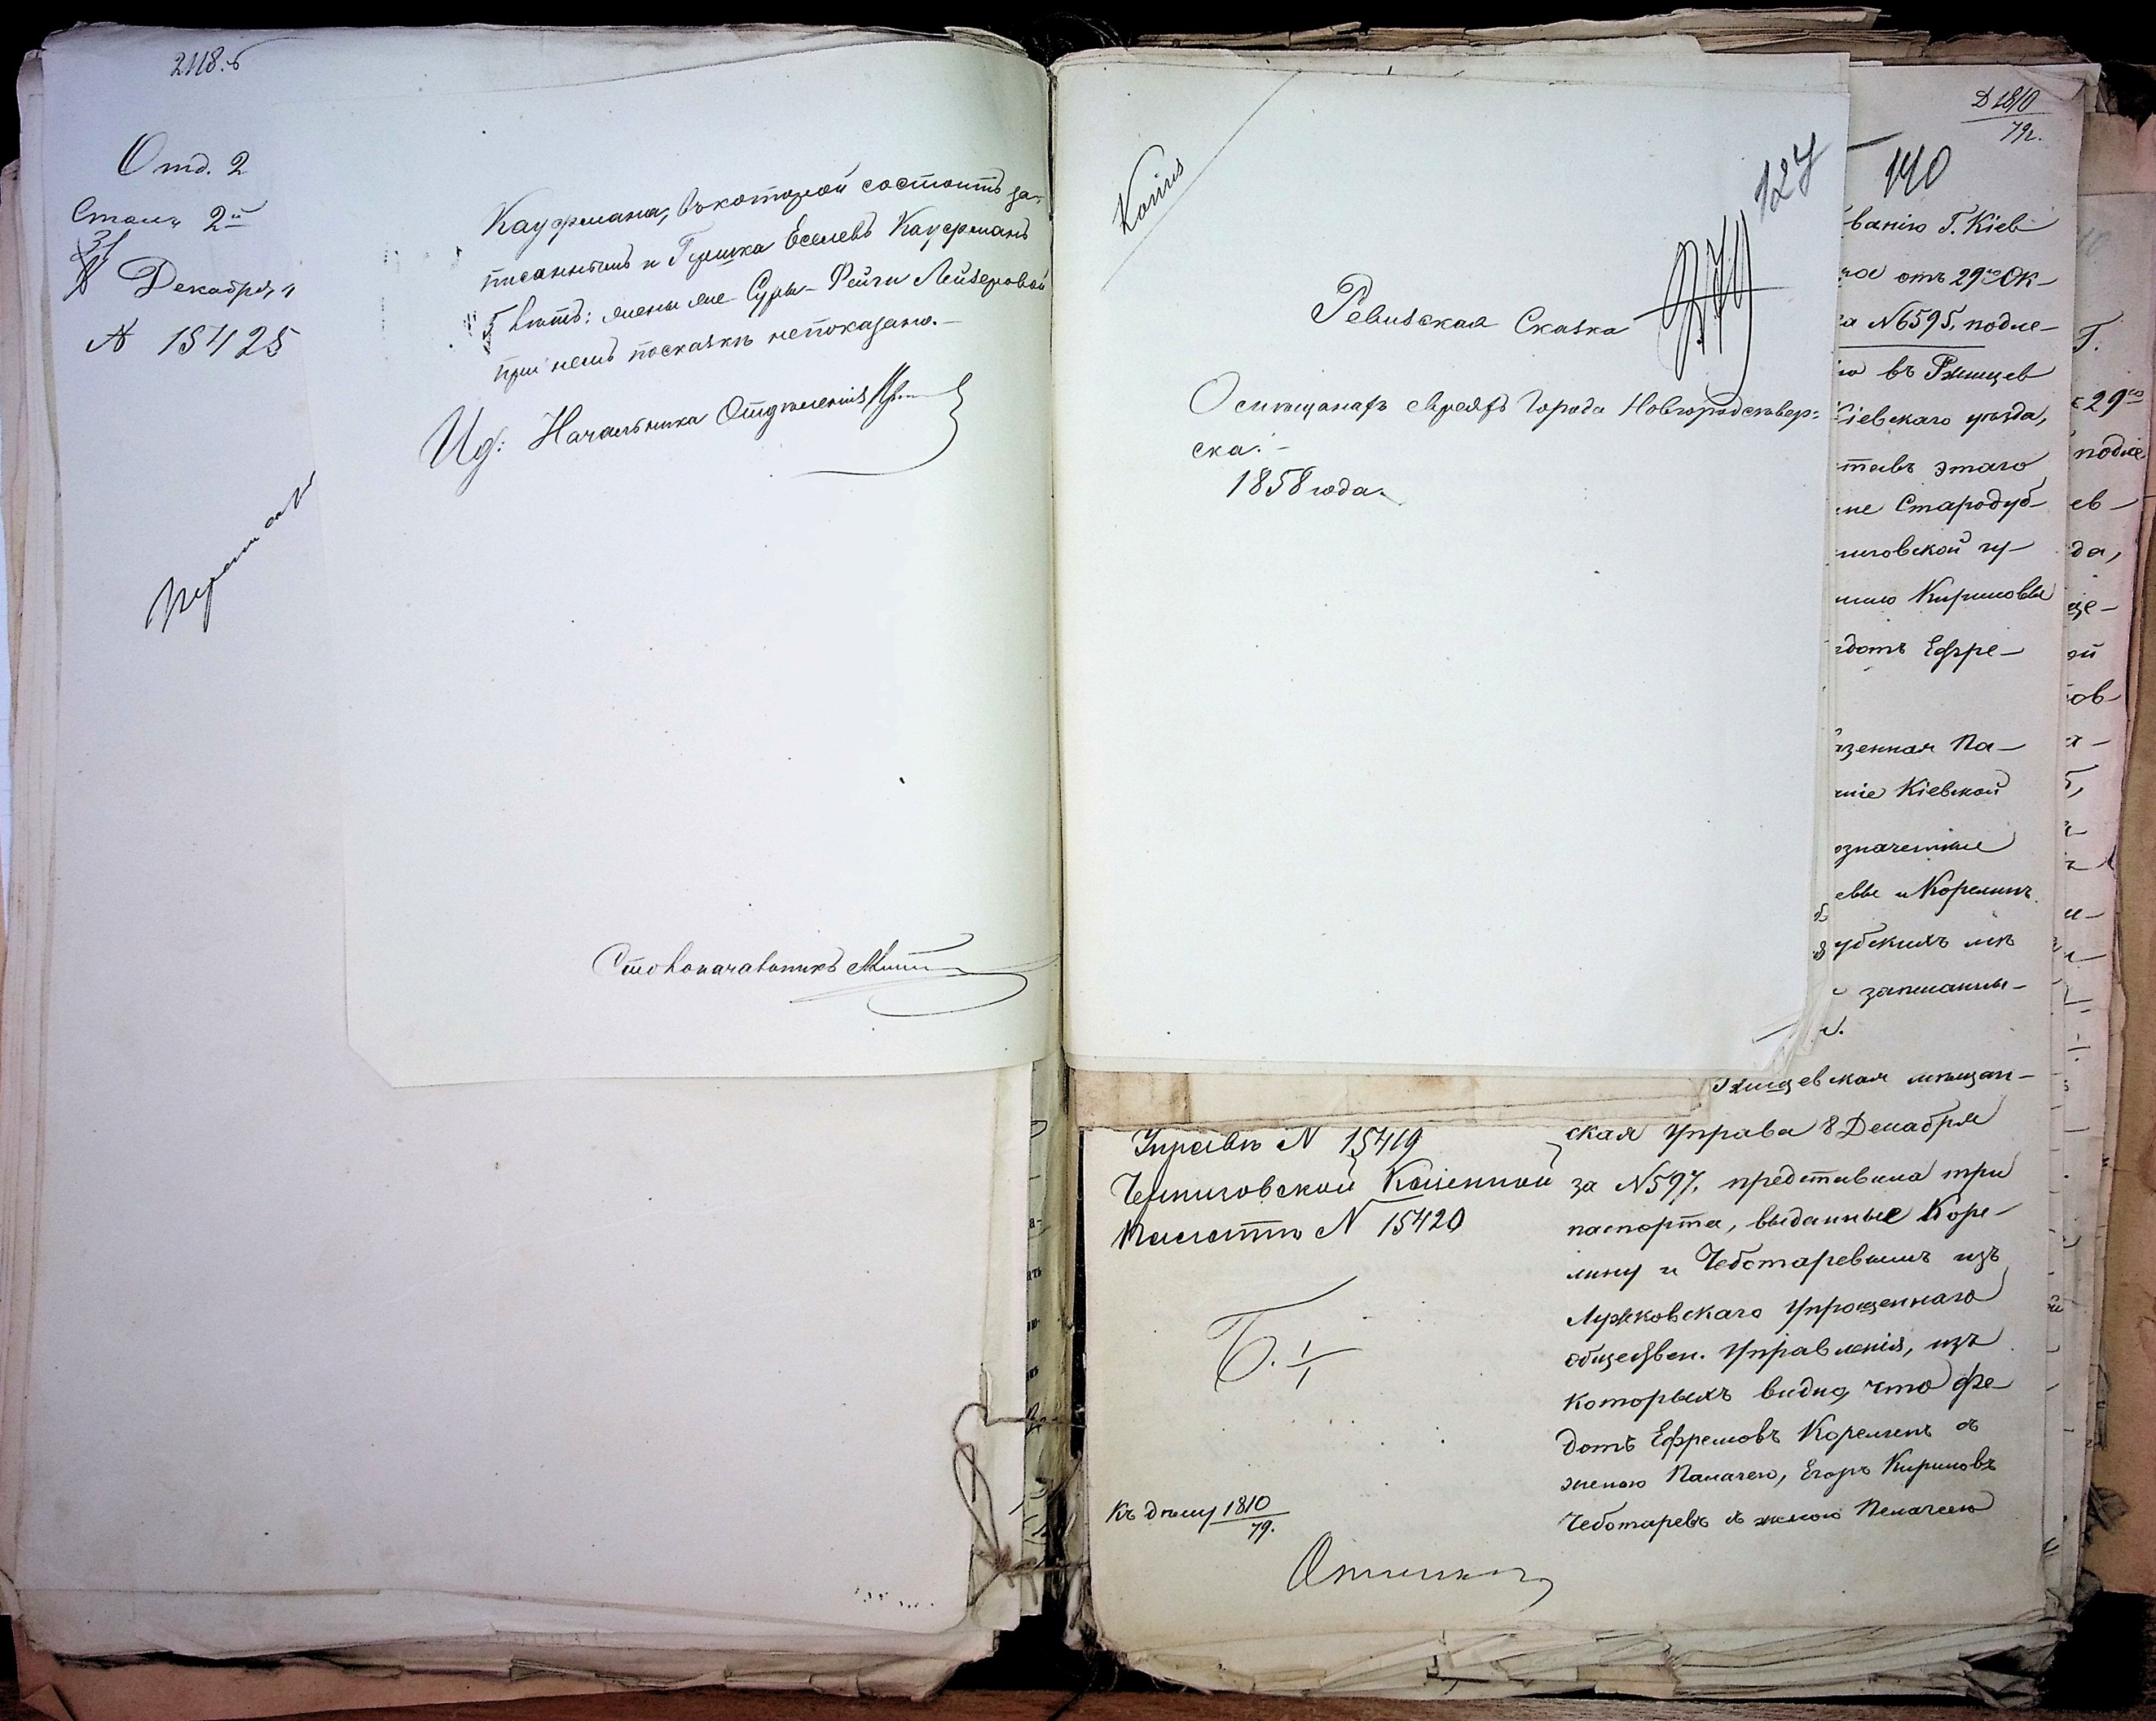 2118.б
Отд. 2
Столъ 2й
31
Декабря
№ 15425
Кауфмана, въ которой состоитъ за-
писаннымъ и Гершка Еселевъ Кауфманъ
5 лѣтъ: жены же Суры-Фейги Лейзеровой
при немъ по сказкѣ непоказано.—
Ид: Начальника Отдѣленія
Столоначальникъ
Копія
127
Ревизская Сказка
О мѣщанахъ евреяхъ города Новгородсѣвер-
ска.—
1858 года.
Д 1810
79г.
140
ванію Г. Кіев
отъ 29го Ок-
№ 6595, подле-
въ Ржищев
Кіевскаго уѣзда,
ставъ этаго
Стародуб-
ниговской гу-
Кириловы
дотъ Ефре-
азенная Па-
ніе Кіевской
означенные
евы и Корелинъ
убскихъ мѣ
записаны-
Ржищевская мѣщан-
ская Управа 8 Декабря
за № 597, представила три
паспорта, выданные Коре-
лину и Чеботаревымъ изъ
Лужковскаго Упрощеннаго
обществен. Управленія, изъ
которыхъ видно, что Фе-
дотъ Ефремовъ Корелинъ съ
женою Палагею, Егоръ Кириловъ
Чеботаревъ съ женою Пелагеею
Управѣ № 15419
Черниговской Казенной
Палатѣ № 15420
Б. 1/1
Къ дѣлу 1810
79.
29го
подле
ев-
да,
ой
ов-